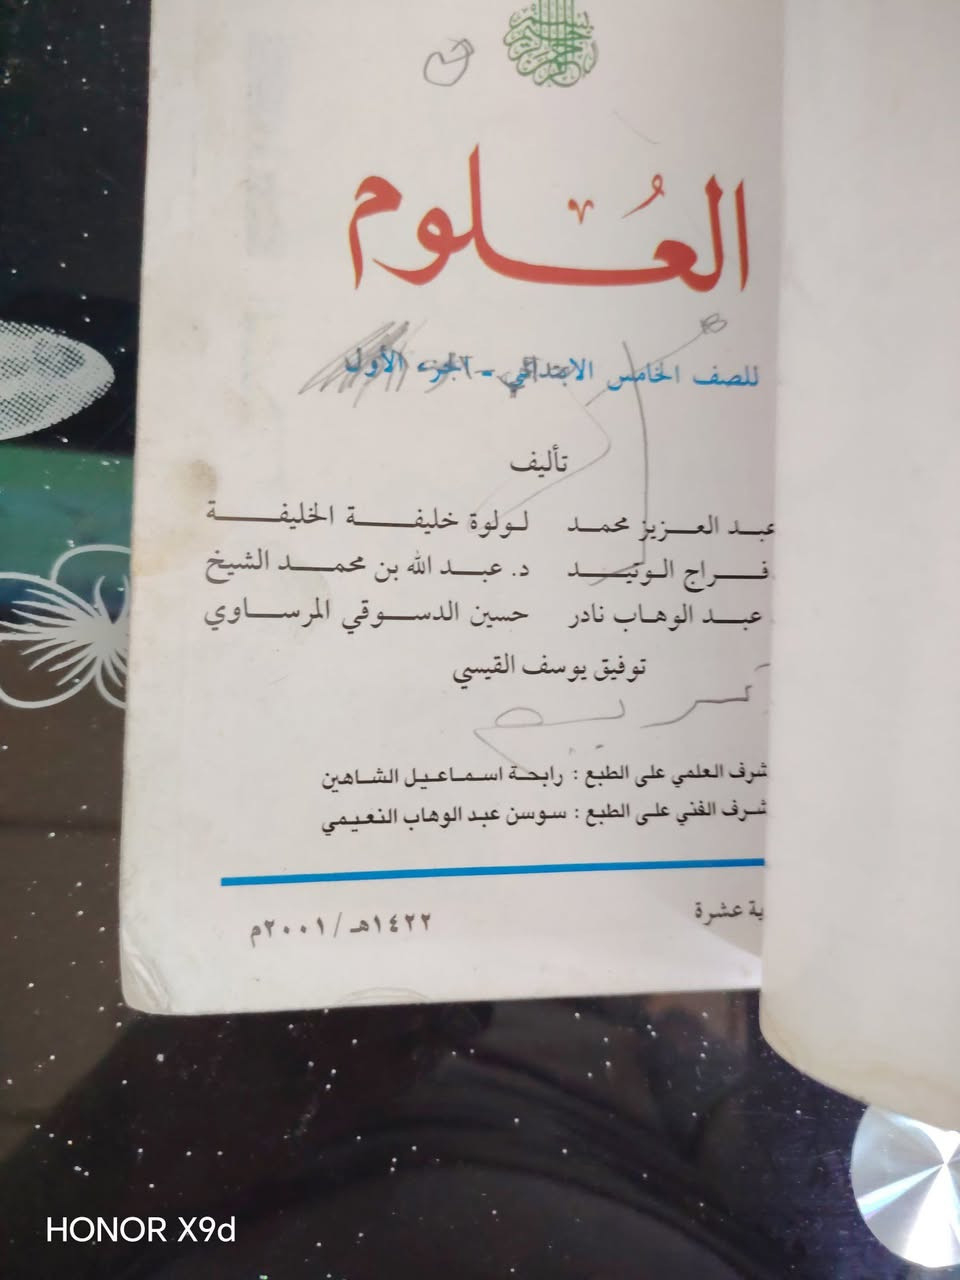 العُلوم
للصف الخامس الابتدائي - الجزء الأول
تأليف
عبد العزيز محمد لولوة خليفة الخليفة
فراج الوتيد د. عبد الله بن محمد الشيخ
عبد الوهاب نادر حسين الدسوقي المرساوي
توفيق يوسف القيسي
شرف العلمي على الطبع : رابحة اسماعيل الشاهين
شرف الفني على الطبع : سوسن عبد الوهاب النعيمي
ية عشرة
١٤٢٢هـ / ٢٠٠١م
HONOR X9d